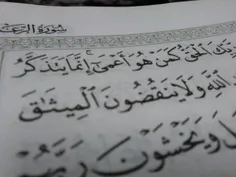 سُورَةُ الرَّعْدِ
رَبِّكَ ٱلْحَقُّ كَمَنْ هُوَ أَعْمَىٰٓ ۚ إِنَّمَا يَتَذَكَّرُ
ٱللَّهِ وَلَا يَنقُضُونَ ٱلْمِيثَٰقَ
وَيَخْشَوْنَ رَبَّهُمْ